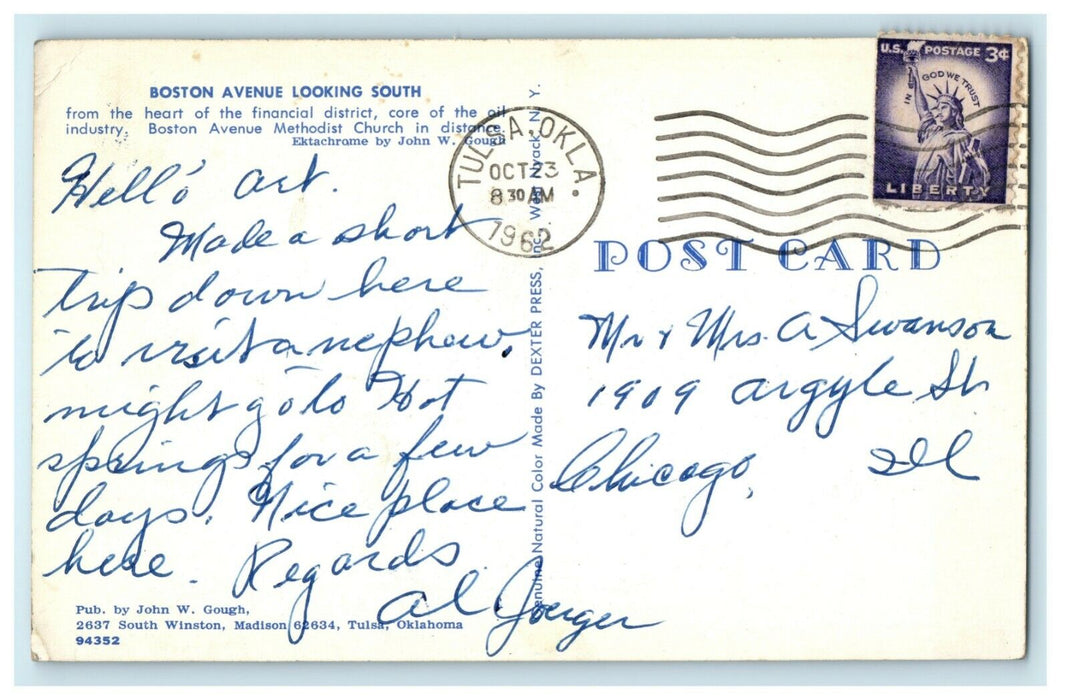 BOSTON AVENUE LOOKING SOUTH
from the heart of the financial district, core of the oil
industry. Boston Avenue Methodist Church in distance.
Ektachrome by John W. Gough
Hello Art.
Made a short
trip down here
to visit a nephew.
might go to Hot
springs for a few
days. Nice place
here. Regards
Al
Pub. by John W. Gough,
2637 South Winston, Madison 62634, Tulsa, Oklahoma
94352
Genuine Natural Color Made By DEXTER PRESS, Inc. West Nyack, N. Y.
TULSA, OKLA.
OCT 23
8 30 AM
1962
U.S. POSTAGE 3¢
IN GOD WE TRUST
LIBERTY
POST CARD
Mr & Mrs. A Swanson
1909 Argyle St
Chicago, Ill